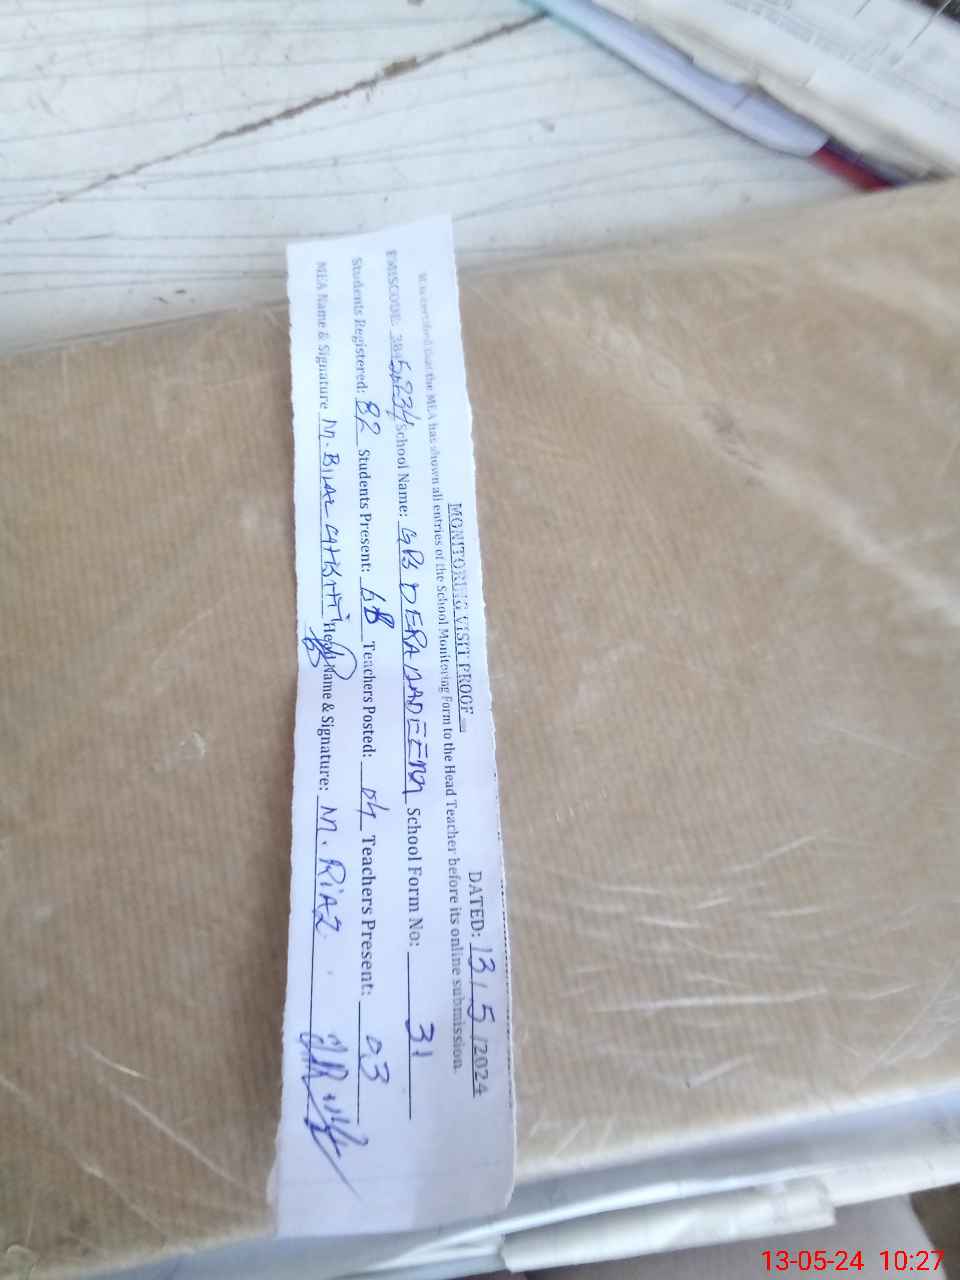 MONITORING VISIT PROOF – DATED: 13/5/2024
It is certified that the MEA has shown all entries of the School Monitoring Form to the Head Teacher before its online submission.
EMISCODE: School Name: School Form No: 31
Students Registered: 82 Students Present: 68 Teachers Posted: 04 Teachers Present: 03
MEA Name & Signature M. BILAL Head Name & Signature: M. RIAZ
13-05-24 10:27